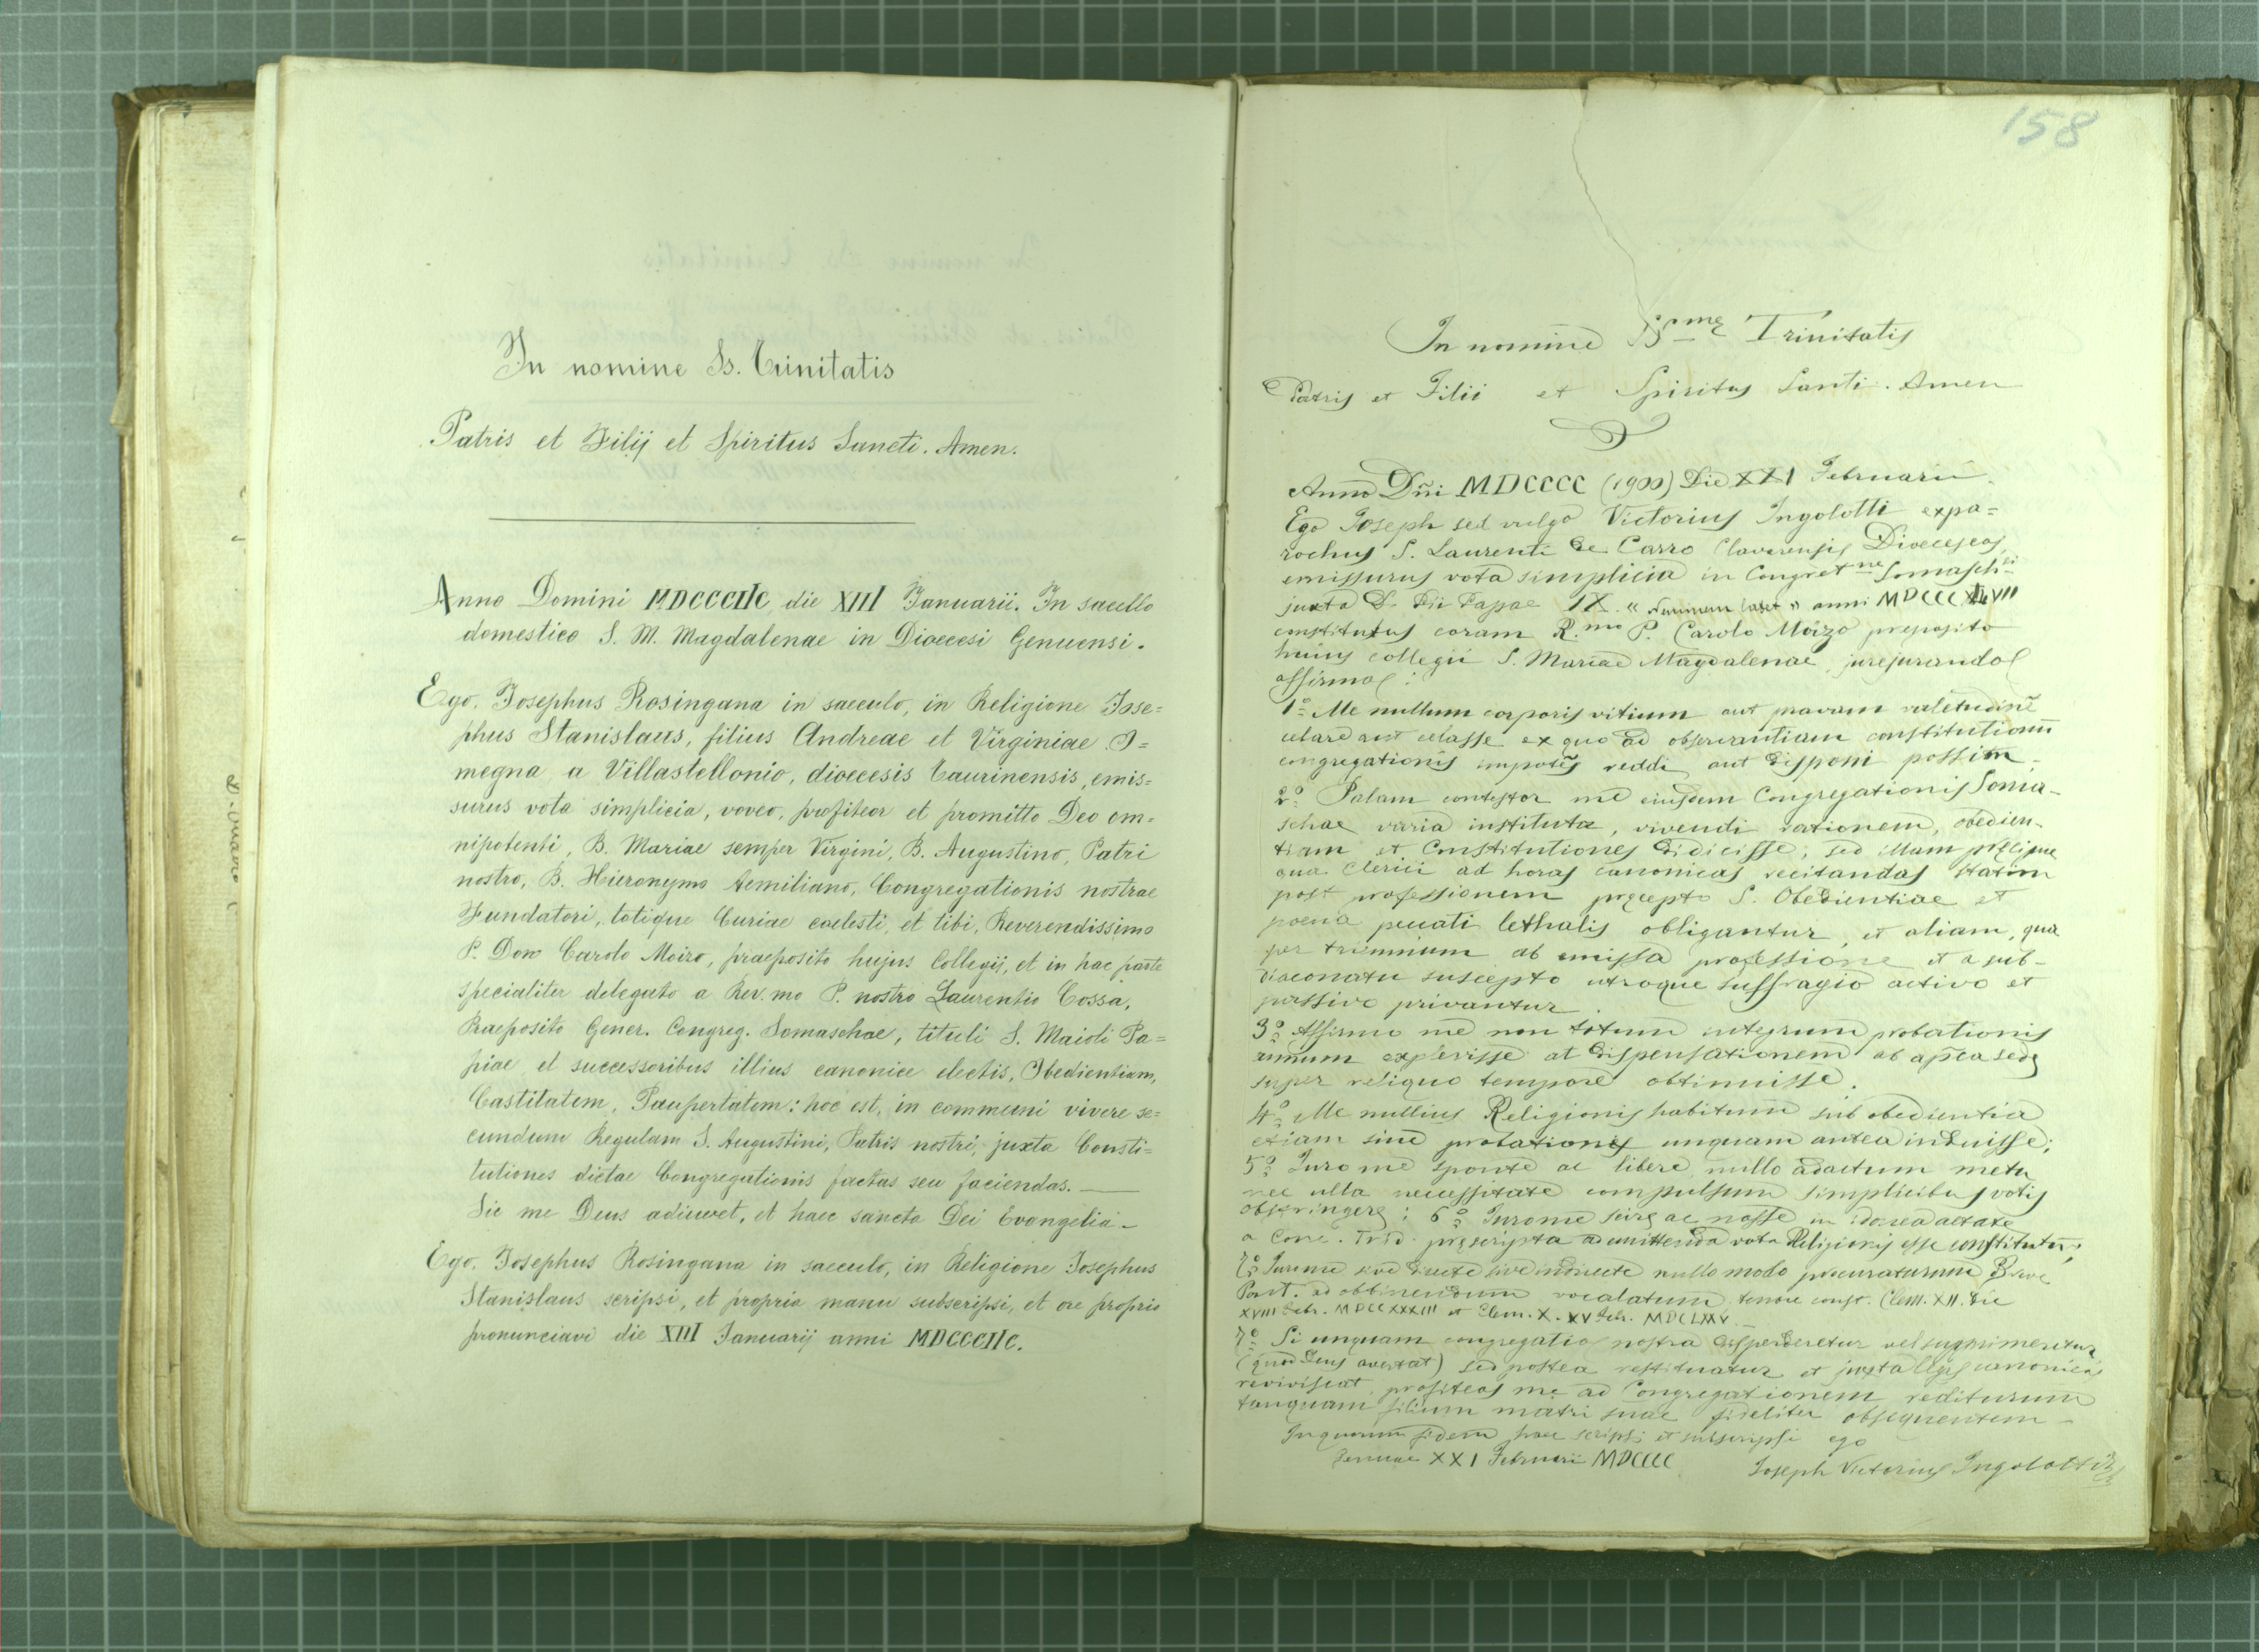 In nomine Ss. Trinitatis
Patris et Filij et Spiritus Sancti. Amen.
Anno Domini MDCCCIIC die XIII Januarii. In sacello
domestico S. M. Magdalenae in Dioecesi Genuensi.
Ego. Josephus Rosingana in saeculo, in Religione Jose=
phus Stanislaus, filius Andreae et Virginiae O=
megna a Villastellonio, dioecesis Taurinensis, emis=
surus vota simplicia, voveo, profiteor et promitto Deo om=
nipotenti, B. Mariae semper Virgini, B. Augustino, Patri
nostro, B. Hieronymo Aemiliano, Congregationis nostrae
Fundatori, totique Curiae coelesti, et tibi, Reverendissimo
P. Don Carolo Moizo, praeposito hujus Collegij, et in hac parte
specialiter delegato a Rev.mo P. nostro Laurentio Cossa,
Praeposito Gener. Congreg. Somaschae, tituli S. Maioli Pa=
piae et successoribus illius canonice electis, Obedientiam,
Castitatem, Paupertatem: hoc est, in communi vivere se=
cundum Regulam S. Augustini, Patris nostri, juxta Consti=
tutiones dictae Congregationis factas seu faciendas. —
Sic me Deus adiuvet, et haec sancta Dei Evangelia —
Ego. Josephus Rosingana in saeculo, in Religione Josephus
Stanislaus scripsi, et propria manu subscripsi, et ore proprio
pronunciavi die XIII Januarij anni MDCCCIIC.
158
In nomine SS.mae Trinitatis
Patris et Filii et Spiritus Santi. Amen
Anno Dñi MDCCCC (1900) Die XXI Februarii.
Ego Joseph sed vulgo Victorius Ingolotti expa=
rochus S. Laurenti de Carro Claverensis Dioeceseos,
emissurus vota simplicia in Congret.ne Somasch.si
juxta D. Pii Papae IX. « Neminem latet » anni MDCCCXLVIII
constitutus coram R.mo P. Carolo Moizo preposito
huius collegii S. Mariae Magdalenae, jurejurando
affirmo:
1º Me nullum corporis vitium aut pravam valetudinē
celare aut celasse ex quo ad observantiam constitutionū
congregationis impotēs reddi aut disponi possim.
2º Palam contestor me eiusdem Congregationis Soma-
schae varia instituta, vivendi rationem, obedien-
tiam et Constitutiones didicisse; sed illam precipue
qua Clerici ad horas canonicas recitandas statim
post professionem precepto S. Obedientiae et
poena peccati lethalis obligantur, et aliam, qua
per triennium ab emissa professione et a sub-
diaconatu suscepto utroque suffragio activo et
passivo privantur.
3º Affirmo me non totum integrum probationis
annum explevisse at dispensationem ab aplca sede
super reliquo tempore obtinuisse.
4º Me nullius Religionis habitum sub obedientia
etiam sine probationis unquam antea induisse;
5º Juro me sponte ac libere nullo adactum metu
nec ulla necessitate compulsum simplicibus votis
obstringere; 6º Juro me scire ac nosse in idonea aetate
a Conc. Trid. prescripta ad emittenda vota Religionis esse constitutū;
7º Juro me sive directe sive indirecte nullo modo procuraturum Breve
Pont. ad obtinendum vocalatum, tenore const. Clem. XII. die
XVIII Febr. MDCCXXXIII et Clem. X. XV Feb. MDCLXXV.
7º Si unquam congregatio nostra disperderetur vel supprimeretur
(quod Deus avertat) sed postea restituatur et juxta leges canonicas
reviviscat, profiteor me ad Congregationem rediturum
tanquam filium matri suae fideliter obsequentem —
In quorum fidem haec scripsi et subscripsi ego
Genuae XXI Februarii MDCCCC
Joseph Victorius Ingolotti